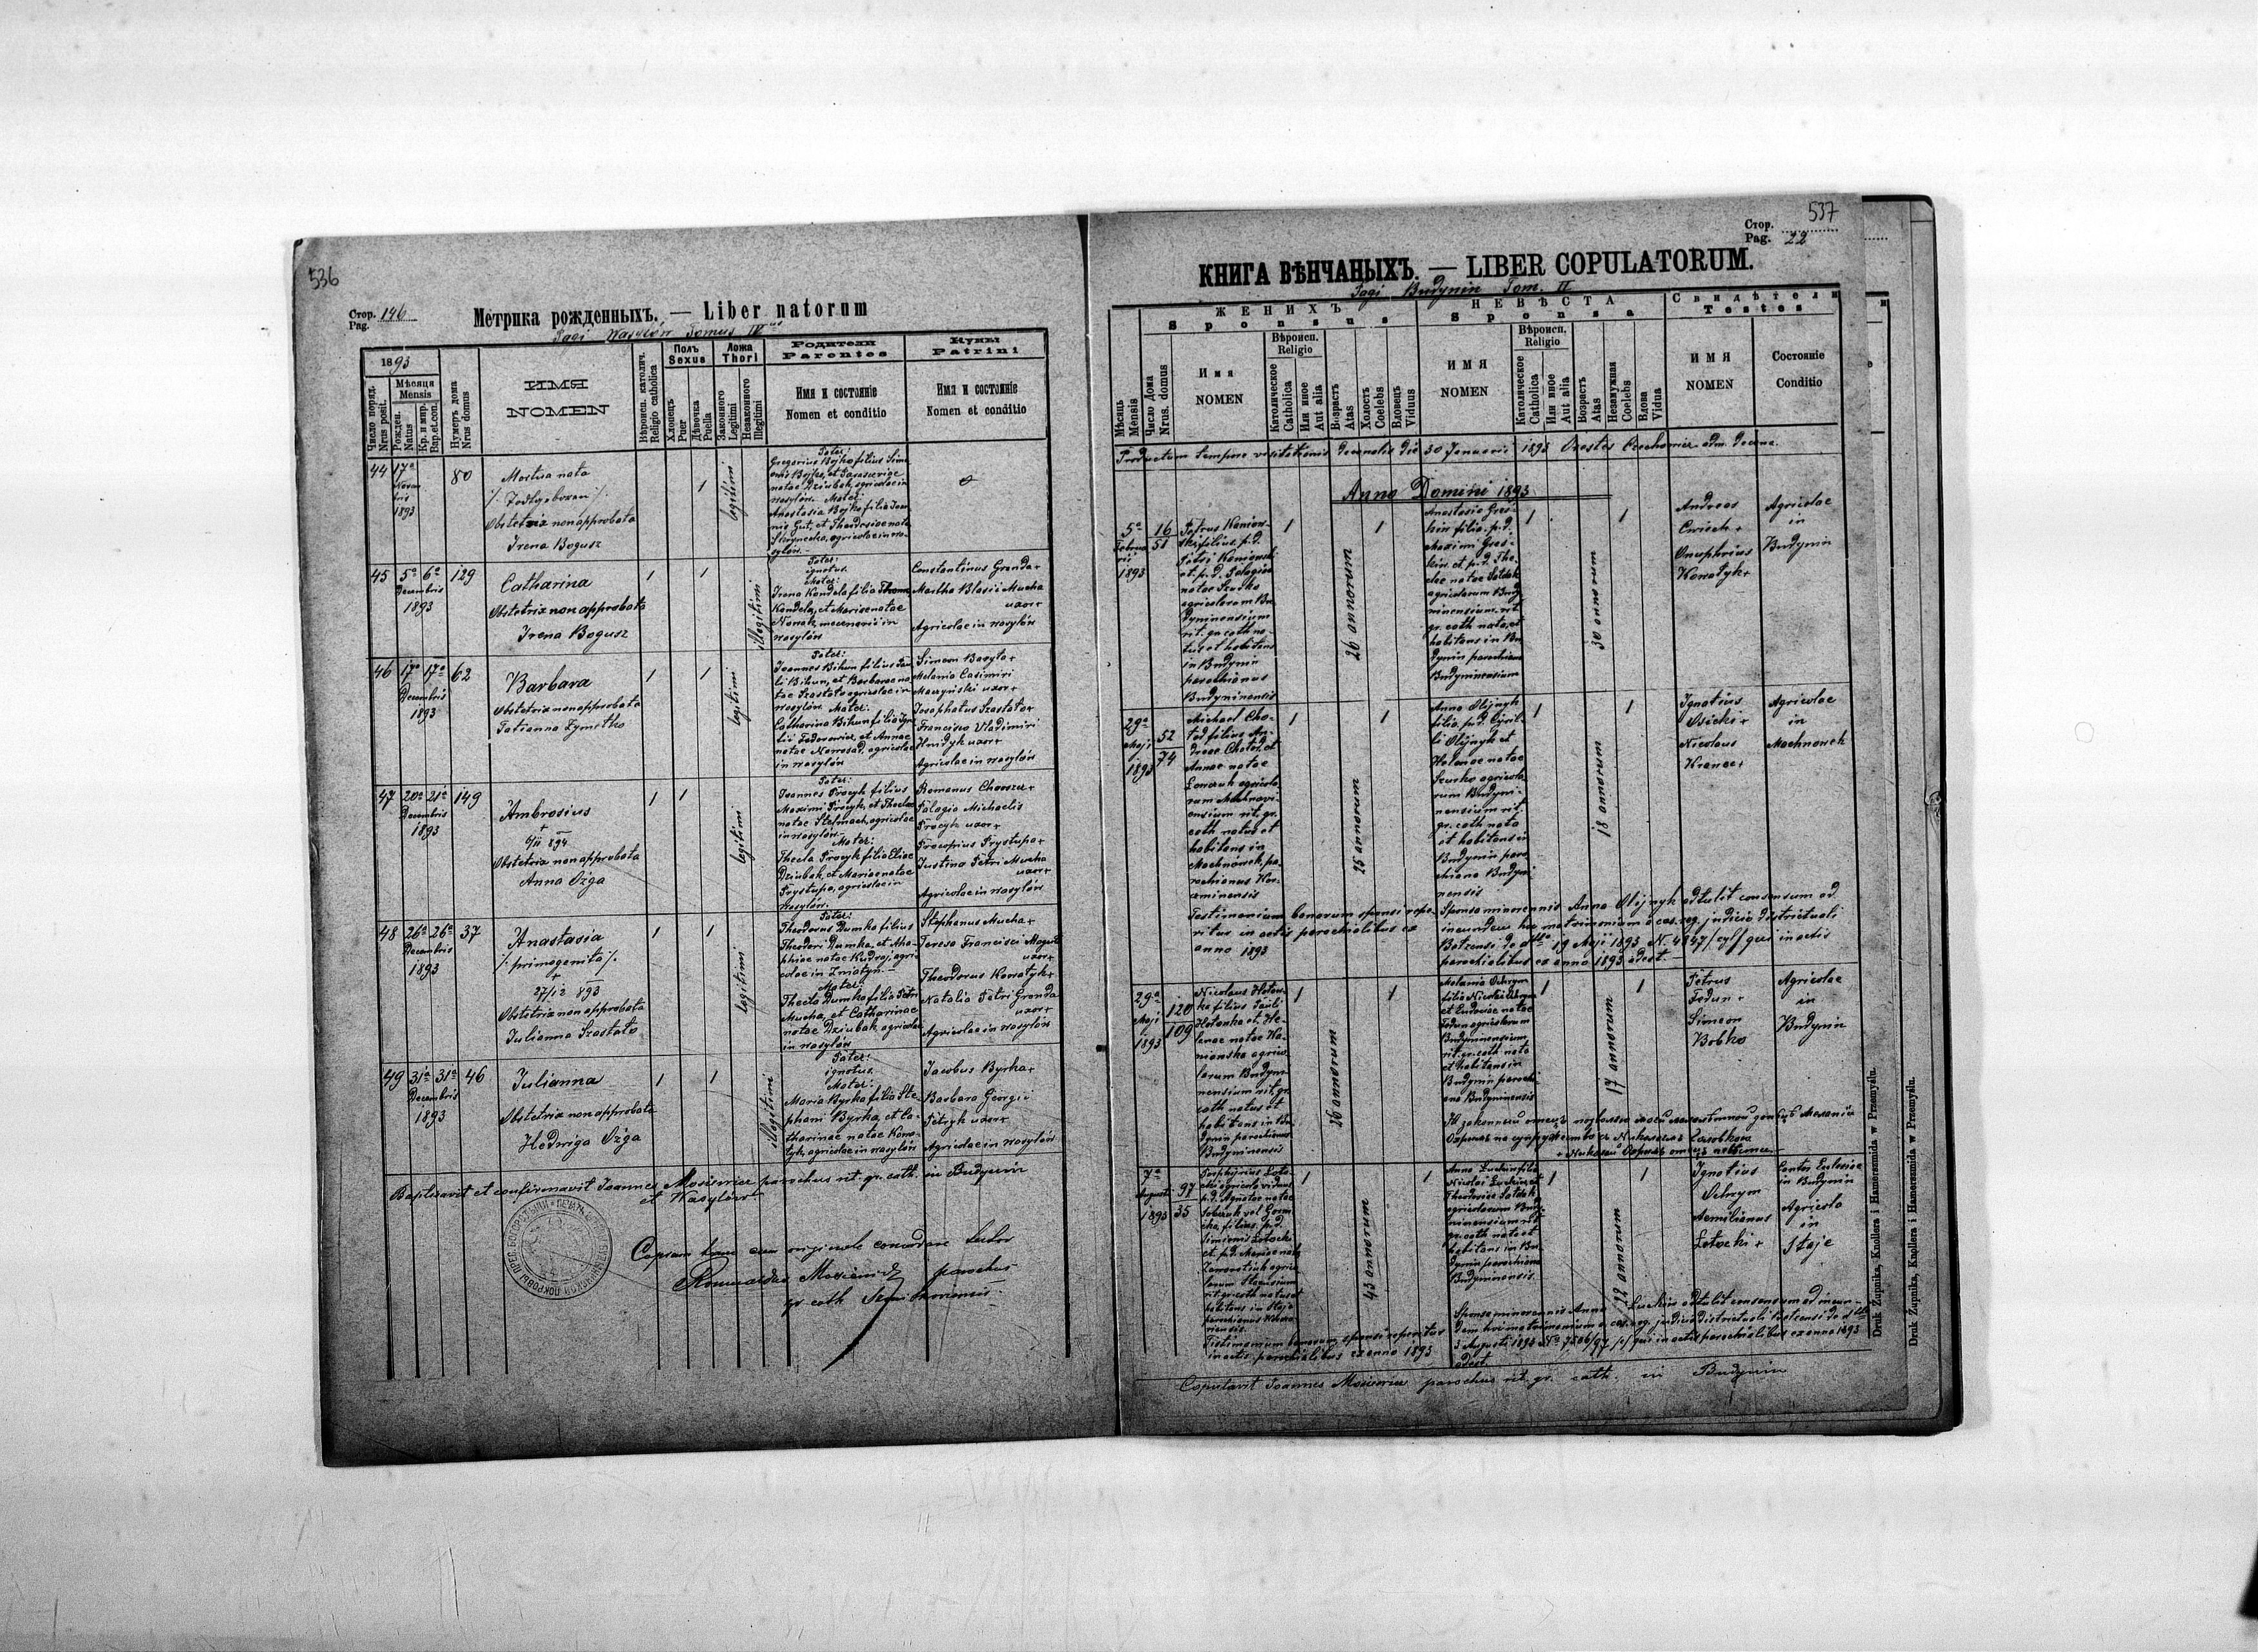 536
Стор. 146
Pag.
Метрика рожденныхъ. — Liber natorum
Pagi Wasylów Tomus IV
1893
Число поряд.
Nrus posit.
Мѣсяця
Mensis
Рожден.
Natus
Кр. и мир.
Bap.et.con.
Нумеръ дома
Nrus domus
ИМЯ
NOMEN
Вѣроисп. католич.
Religio catholica
Полъ
Sexus
Хлопецъ
Puer
Дѣвочка
Puella
Ложа
Thori
Законного
Legitimi
Незаконного
Illegitimi
Родители
Parentes
Имя и состоянїе
Nomen et conditio
Кумы
Patrini
Имя и состоянїе
Nomen et conditio
44 17a
Novem
bris
1893
80
Mortua nata
Obstetrix non approbata
Irena Bogusz
1
legitimi
Pater:
Gregorius Bojko filius Sime
onis Bojko, et Parascevige
natae Dziubak, agricolae in
Wasylów. Mater:
Anastasia Bojko filia Joan
nis Gut, et Theodosiae natae
45 5a 6a
Decembris
1893
129
Catharina
Obstetrix non approbata
Irena Bogusz
1 1
illegitimi
Pater:
ignotus.
Mater:
Irena Kondela filia Thomae
Kondela, et Mariae natae
Nowak, mercenarii in
Wasylów
Constantinus Granda +
Martha Blasii Mucha
uxor +
Agricolae in Wasylów
46 17a 17a
Decembris
1893
62
Barbara
Obstetrix non approbata
Tatianna Zymetko
1 1
legitimi
Pater:
Joannes Bihun filius Pau
li Bihun, et Barbarae na
tae Szostato agricolae in
Wasylów. Mater:
Catharina Bihun filia Igna
tii Fedorowicz, et Annae
natae Nowosad, agricolae
in Wasylów
Simeon Basyta +
Melania Casimiri
Muszyński uxor +
Josaphatus Szostato +
Francisca Vladimiri
Hrudyk uxor +
Agricolae in Wasylów
47 20a 21a
Decembris
1893
149
Ambrosius
+
6/II 894
Obstetrix non approbata
Anna Ożga
1 1
legitimi
Pater:
Joannes Procyk filius
Maximi Procyk, et Theclae
natae Stelmach, agricolae
in Wasylów.
Mater:
Thecla Procyk filia Eliae
Dziubak, et Mariae natae
Prystupa, agricolae in
Wasylów.
Romanus Charszu +
Palagia Michaelis
Procyk uxor +
Procopius Prystupa +
Justina Petri Mucha
uxor +
Agricolae in Wasylów
48 26a 26a
Decembris
1893
37
Anastasia
/: primogenita :/
+
27/12 893
Obstetrix non approbata
Julianna Szostato
1 1
legitimi
Pater:
Theodorus Dumka filius
Theodori Dumka, et Aha
phiae natae Kudraj, agri
colae in Żniatyn.
Mater:
Thecla Dumka filia Petri
Mucha, et Catharinae
natae Dziubak, agricolae
in Wasylów
Stephanus Mucha +
Teresa Francisci Magut
uxor +
Theodorus Konatyk +
Natalia Petri Granda
uxor +
Agricolae in Wasylów
49 31a 31a
Decembris
1893
46
Julianna
Obstetrix non approbata
Hedwiga Ożga
1 1
illegitimi
Pater:
ignotus.
Mater:
Maria Byrka filia Ste
phani Byrka, et Ca
tharinae natae Kona
tyk, agricolae in Wasylów
Jacobus Byrka +
Barbara Georgii
Petryk uxor +
Agricolae in Wasylów
Baptisavit et confirmavit Joannes Mosiewicz parochus rit. gr. cath. in Budynin
et Wasylów
Copiam hanc cum originale concordare testor
parochus
gr cath
537
Стор.
Pag. 22
КНИГА ВѢНЧАНЫХЪ. — LIBER COPULATORUM.
Pagi Budynin Tom. II
Мѣсяць
Mensis
Число дома
Nrus. domus
ЖЕНИХЪ
Sponsus
Имя
NOMEN
Вѣроисп.
Religio
Католическое
Catholica
Или иное
Aut alia
Возрастъ
Atas
Холостъ
Coelebs
Вдовецъ
Viduus
НЕВѢСТА
Sponsa
ИМЯ
NOMEN
Вѣроисп.
Religio
Католическое
Catholica
Или иное
Aut alia
Возрастъ
Atas
Незамужная
Coelebs
Вдова
Vidua
Свидѣтели
Testes
ИМЯ
NOMEN
Состоянїе
Conditio
Productum tempore visitationis decanalis die 30 Januarii 1893 Orestes Czechowicz adm. decana.
Anno Domini 1893
5a
Februa
rii
1893
16
51
Petrus Kaniow
ski filius p.d.
Petri Kaniowski
et p. d. Pelagiae
natae Szurko
agricolarum Bu
dyninensium
rit. gr. cath na
tus et habitans
in Budynin
parochianus
Budyninensis
1
26 annorum
1
Anastasia Gres
kiw filia p. d.
Maximi Gres
kiw et p. d. The
clae natae Sołdak
agricolarum Budy
ninensium rit.
gr. cath nata, et
habitans in Bu
dynin parochiana
Budyninensium
1
30 annorum
1
Andreas
Cwiech +
Onuphrius
Konatyk +
Agricolae
in
Budynin
29a
Maji
1893
52
74
Michael Cho
tod filius An
dreae Chotod, et
Annae natae
agricola
rum Machnovi
ensium rit. gr.
cath natus et
habitans in
Machnówek, pa
rochianus
1
25 annorum
1
Anna Olijnyk
filia p.d. Cyril
li Olijnyk et
Helenae natae
Szurko agricola
rum Budyni
nensium rit.
gr. cath nata
et habitans in
Budynin paro
chiana Budyni
nensis
1
18 annorum
1
Ignatius
Osicki +
Nicolaus
Kranec +
Agricolae
in
Machnowek
Testimonium bonorum sponsi repe
ritur in actis parochialibus ex
anno 1893
Sponsa minorennis Anna Olijnyk adtulit consensum ad
ineundum hoc matrimonium a caes. reg. judicio districtuali
Betzensi de dtto 19 Maji 1893 N. 4357/ qui in actis
parochialibus ex anno 1893 adest
29a
Maji
1893
120
109
Nicolaus Hotow
ka filius Pauli
Hotowka et He
lenae natae Ka
niowska agrico
larum Budyni
nensium rit. gr.
cath natus et
habitans in Bu
dynin parochianus
Budyninensis
1
26 annorum
1
Melania Ochrym
filia Nicolai Ochrym
et Eudociae natae
Fedun agricolarum
Budyninensium
rit. gr. cath nata
et habitans in
Budynin parochi
ana Budyninensis
1
17 annorum
1
Petrus
Fedun +
Simeon
Bobko
Agricolae
in
Budynin
7a
Augusti
1893
97
35
Porphyrius Loto
cki agricola viduus
p.d. Agnetae natae
filius p.d.
Simeonis Lotocki
et p.d. Mariae natae
1
43 annorum
1
Anna Luckiw filia
Nicolai Luckiw et
Theodosiae Sołdak
agricolarum Budy
ninensium rit
gr. cath nata et
habitans in Bu
dynin parochiana
Budyninensis
1
22 annorum
1
Ignatius
Ochrym
Aemilianus
Lotocki +
Cantor Ecclesiae
in Budynin
Agricola
in
Staje
Testimonium bonorum sponsi reperitur
in actis parochialibus ex anno 1893
Sponsa minorennis Anna Luckiw adtulit consensum ad ineun
dum hoc matrimonium a caes. reg. judicio districtuali Betzensi de dtto
3 Augusti 1893 No 7506/97 qui in actis parochialibus ex anno 1893
adest
Copulavit Joannes Mosiewicz parochus rit. gr. cath. in Budynin
Druk Żupnika, Knollera i Hamerszmida w Przemyślu.
Druk Żupnika, Knollera i Hamerszmida w Przemyślu.